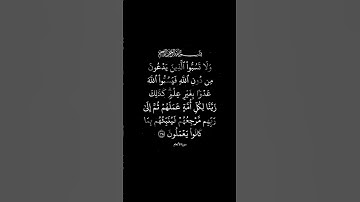 وَلَا تَسُبُّوا۟ ٱلَّذِينَ يَدْعُونَ
مِن دُونِ ٱللَّهِ فَيَسُبُّوا۟ ٱللَّهَ
عَدْوًۢا بِغَيْرِ عِلْمٍ ۗ كَذَٰلِكَ
زَيَّنَّا لِكُلِّ أُمَّةٍ عَمَلَهُمْ ثُمَّ إِلَىٰ
رَبِّهِم مَّرْجِعُهُمْ فَيُنَبِّئُهُم بِمَا
كَانُوا۟ يَعْمَلُونَ ١٠٨